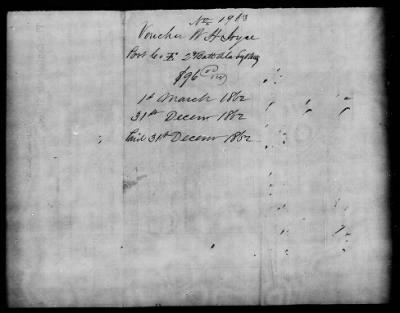 No 1983
Voucher W H Joyce
Co F 2d Batt Ala
$96 00/100
1st March 1862
31st Decem 1862
Paid 31st Decem 1862